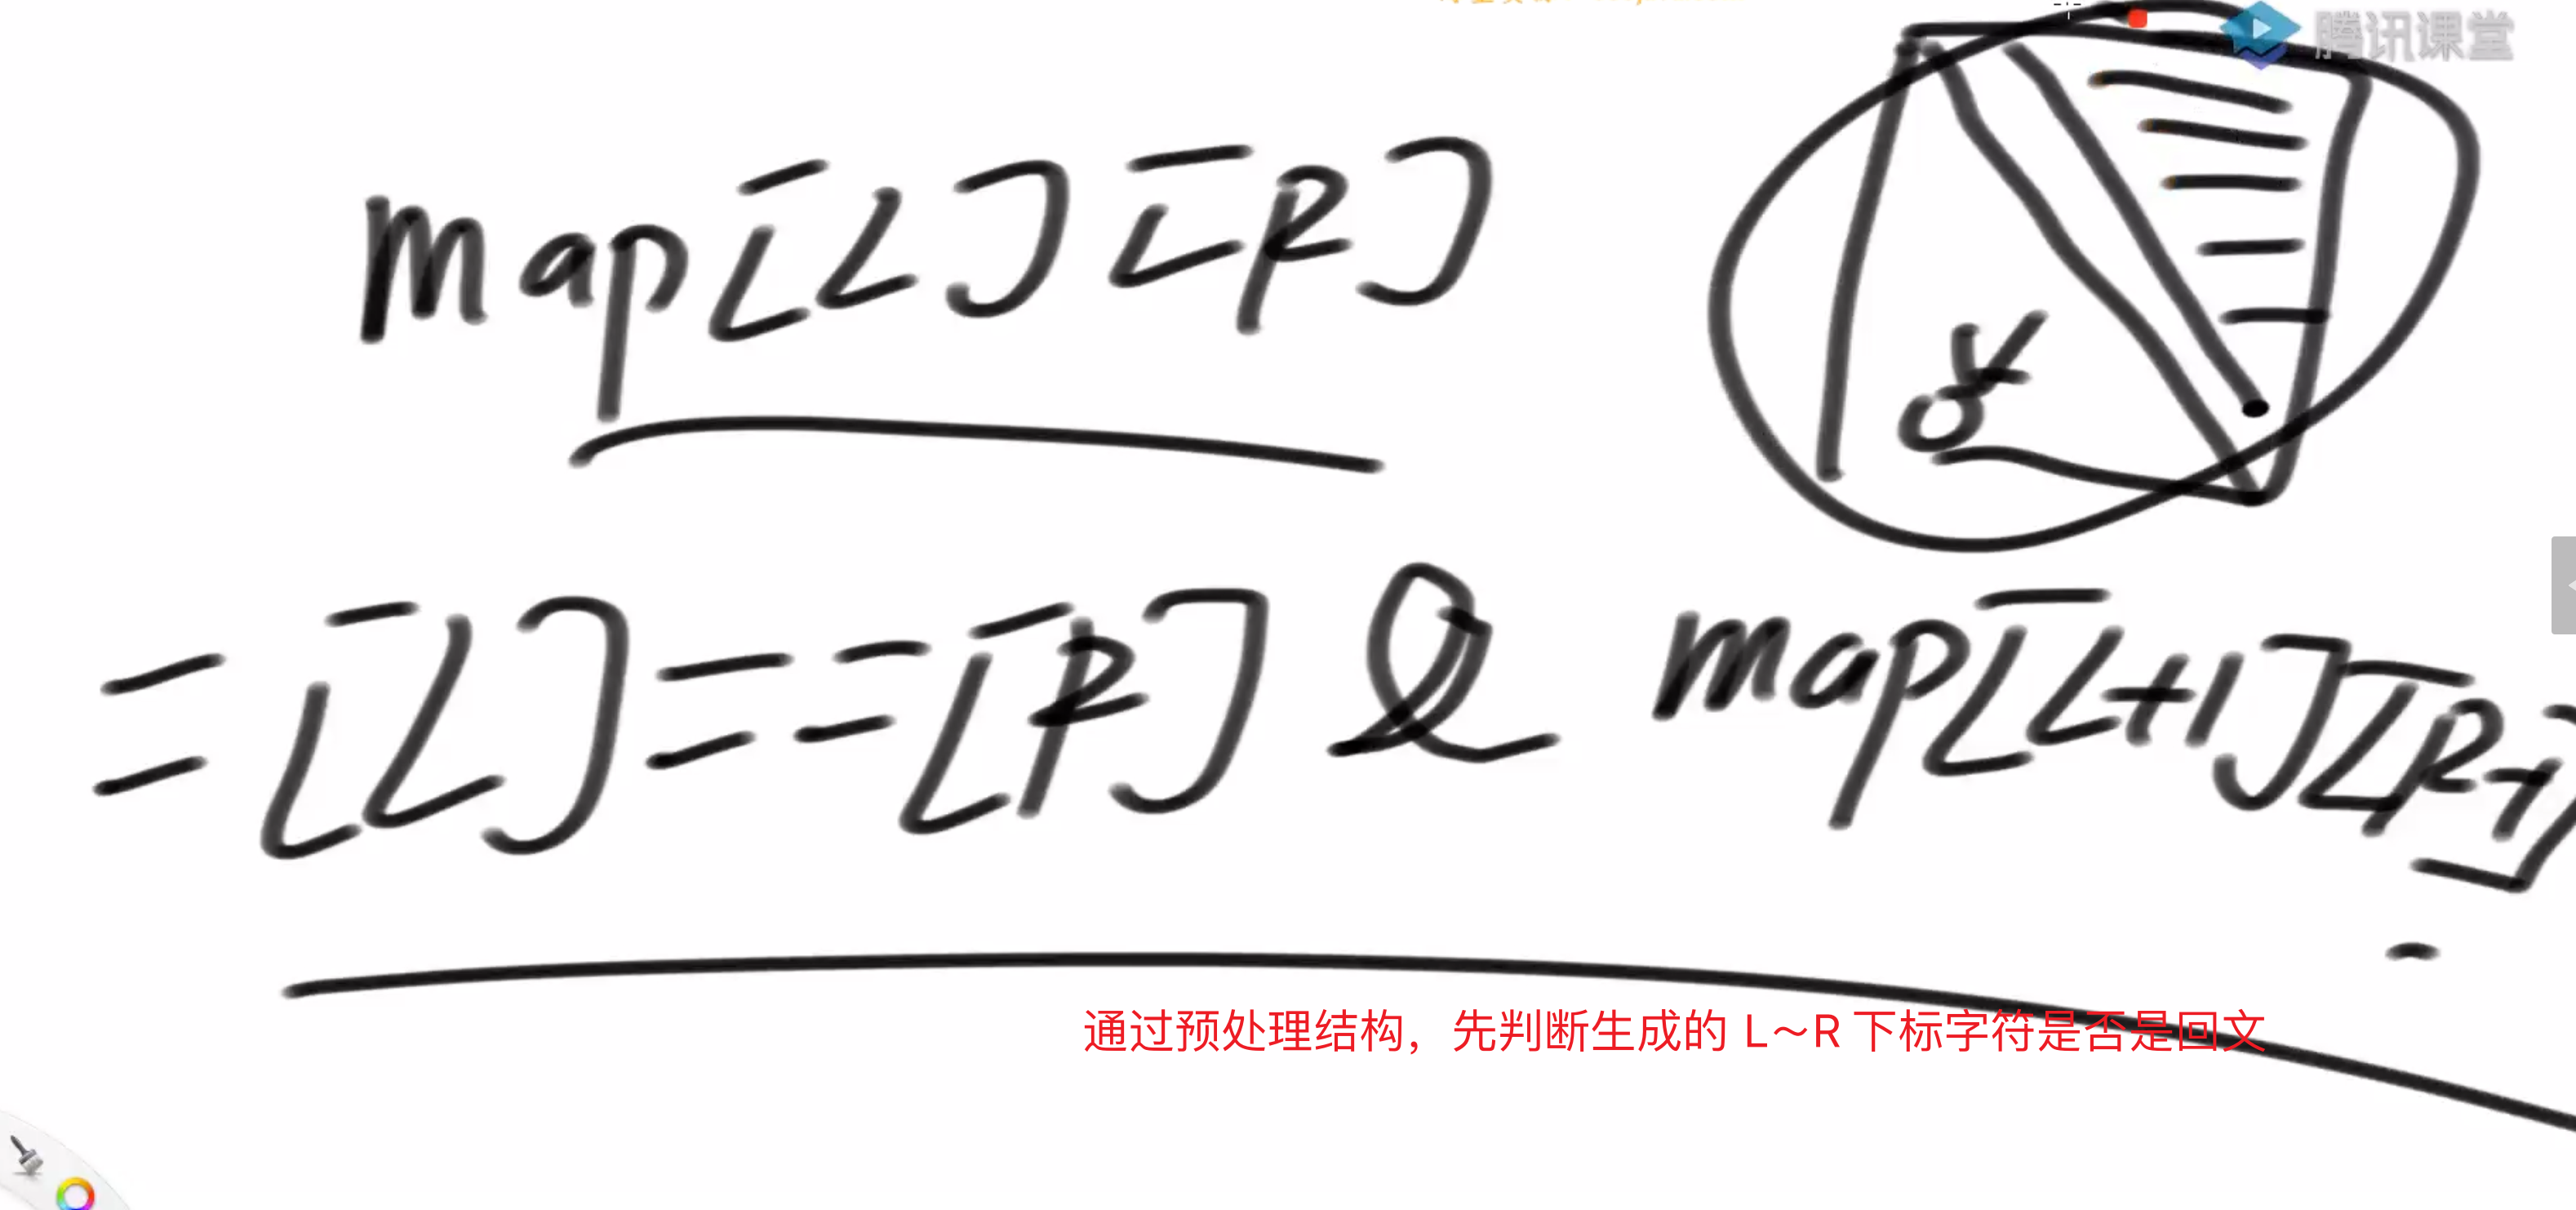 腾讯课堂
map[L][R]
= [L] == [R] & map[L+1][R-1]
通过预处理结构，先判断生成的 L～R 下标字符是否是回文